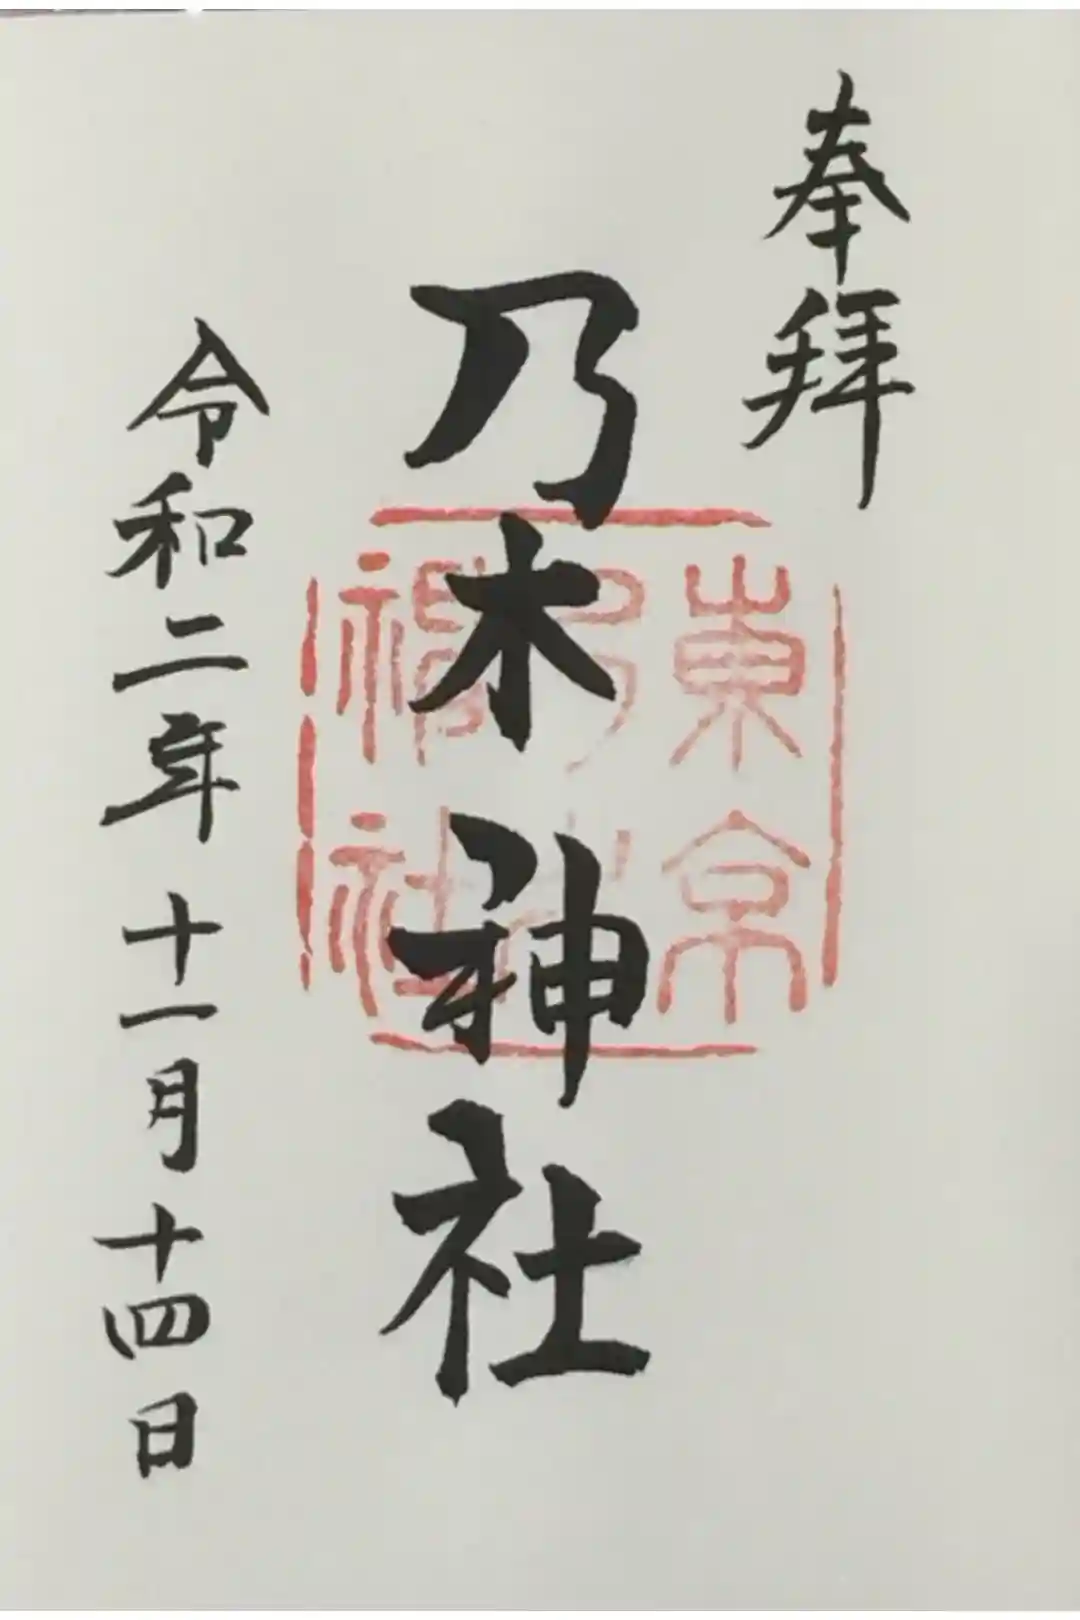 奉拜
乃木神社
東京
乃木
神社
令和二年十一月十四日